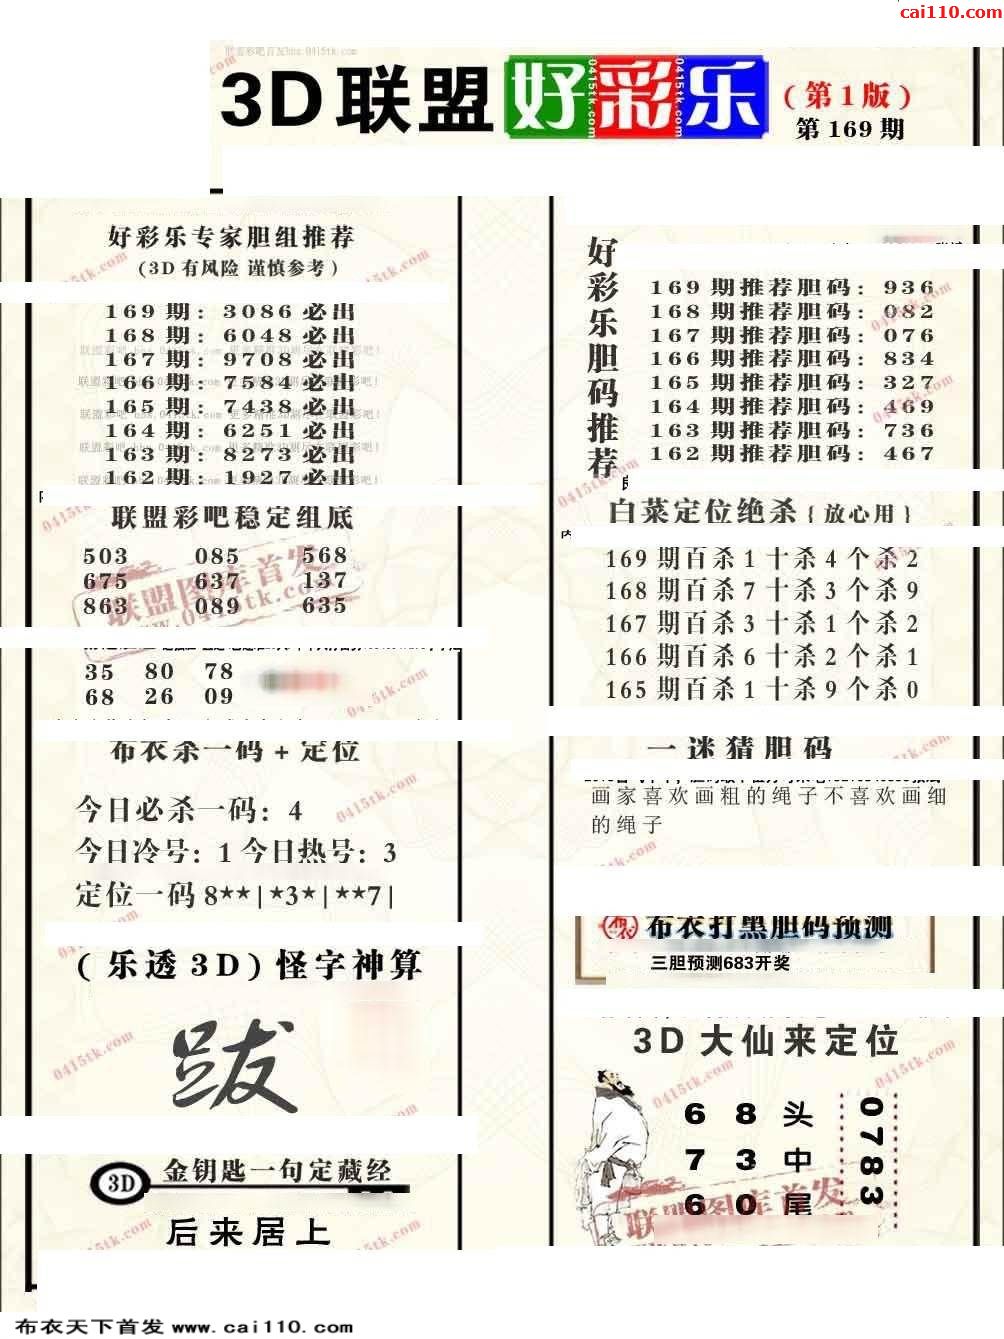 cai110.com
3D联盟 好彩乐
(第1版)
第169期
好彩乐专家胆组推荐
(3D有风险 谨慎参考)
169期: 3086必出
168期: 6048必出
167期: 9708必出
166期: 7584必出
165期: 7438必出
164期: 6251必出
163期: 8273必出
162期: 1927必出
联盟彩吧稳定组底
503 085 568
675 637 137
863 089 635
35 80 78
68 26 09
布衣杀一码+定位
今日必杀一码: 4
今日冷号: 1 今日热号: 3
定位一码8**|*3*|**7|
(乐透3D)怪字神算
跋
3D 金钥匙一句定藏经
后来居上
好彩乐胆码推荐
169期推荐胆码: 936
168期推荐胆码: 082
167期推荐胆码: 076
166期推荐胆码: 834
165期推荐胆码: 327
164期推荐胆码: 469
163期推荐胆码: 736
162期推荐胆码: 467
白菜定位绝杀{放心用}
169期百杀1十杀4个杀2
168期百杀7十杀3个杀9
167期百杀3十杀1个杀2
166期百杀6十杀2个杀1
165期百杀1十杀9个杀0
一迷猜胆码
画家喜欢画粗的绳子不喜欢画细
的绳子
布衣打黑胆码预测
三胆预测683开奖
3D大仙来定位
6 8 头
7 3 中
6 0 尾
0783
联盟图库首发
0415tk.com
布衣天下首发 www.cai110.com